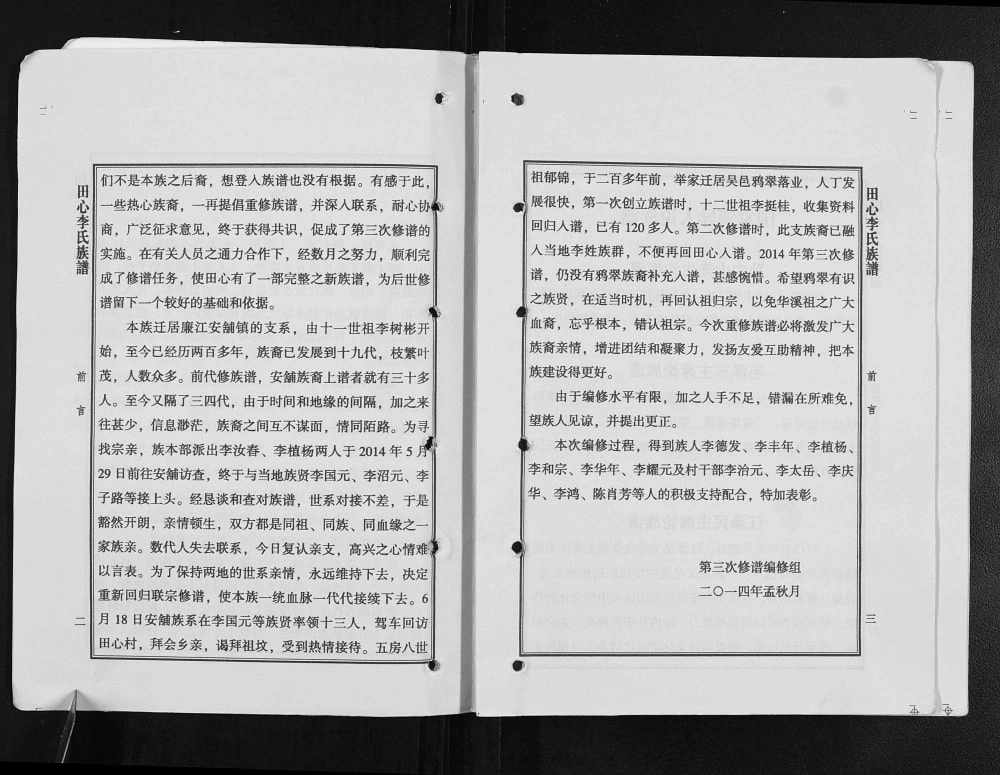 田心李氏族譜
前言
二
们不是本族之后裔，想登人族谱也没有根据。有感于此，
一些热心族裔，一再提倡重修族谱，并深入联系，耐心协
商，广泛征求意见，终于获得共识，促成了第三次修谱的
实施。在有关人员之通力合作下，经数月之努力，顺利完
成了修谱任务，使田心有了一部完整之新族谱，为后世修
谱留下一个较好的基础和依据。
本族迁居廉江安舗镇的支系，由十一世祖李树彬开
始，至今已经历两百多年，族裔已发展到十九代，枝繁叶
茂，人数众多。前代修族谱，安舗族裔上谱者就有三十多
人。至今又隔了三四代，由于时间和地缘的间隔，加之来
往甚少，信息渺茫，族裔之间互不谋面，情同陌路。为寻
找宗亲，族本部派出李汝春、李植杨两人于 2014 年 5 月
29 日前往安舗访查，终于与当地族贤李国元、李沼元、李
子路等接上头。经恳谈和查对族谱，世系对接不差，于是
豁然开朗，亲情顿生，双方都是同祖、同族、同血缘之一
家族亲。数代人失去联系，今日复认亲支，高兴之心情难
以言表。为了保持两地的世系亲情，永远维持下去，决定
重新回归联宗修谱，使本族一统血脉一代代接续下去。6
月 18 日安舗族系在李国元等族贤率领十三人，驾车回访
田心村，拜会乡亲，谒拜祖坟，受到热情接待。五房八世
祖郁锦，于二百多年前，举家迁居吴邑鸦翠落业，人丁发
展很快，第一次创立族谱时，十二世祖李挺桂，收集资料
回归人谱，已有 120 多人。第二次修谱时，此支族裔已融
人当地李姓族群，不便再回田心人谱。2014 年第三次修
谱，仍没有鸦翠族裔补充人谱，甚感惋惜。希望鸦翠有识
之族贤，在适当时机，再回认祖归宗，以免华溪祖之广大
血裔，忘乎根本，错认祖宗。今次重修族谱必将激发广大
族裔亲情，增进团结和凝聚力，发扬友爱互助精神，把本
族建设得更好。
由于编修水平有限，加之人手不足，错漏在所难免，
望族人见谅，并提出更正。
本次编修过程，得到族人李德发、李丰年、李植杨、
李和宗、李华年、李耀元及村干部李治元、李太岳、李庆
华、李鸿、陈肖芳等人的积极支持配合，特加表彰。
第三次修谱编修组
二〇一四年孟秋月
田心李氏族譜
前言
三